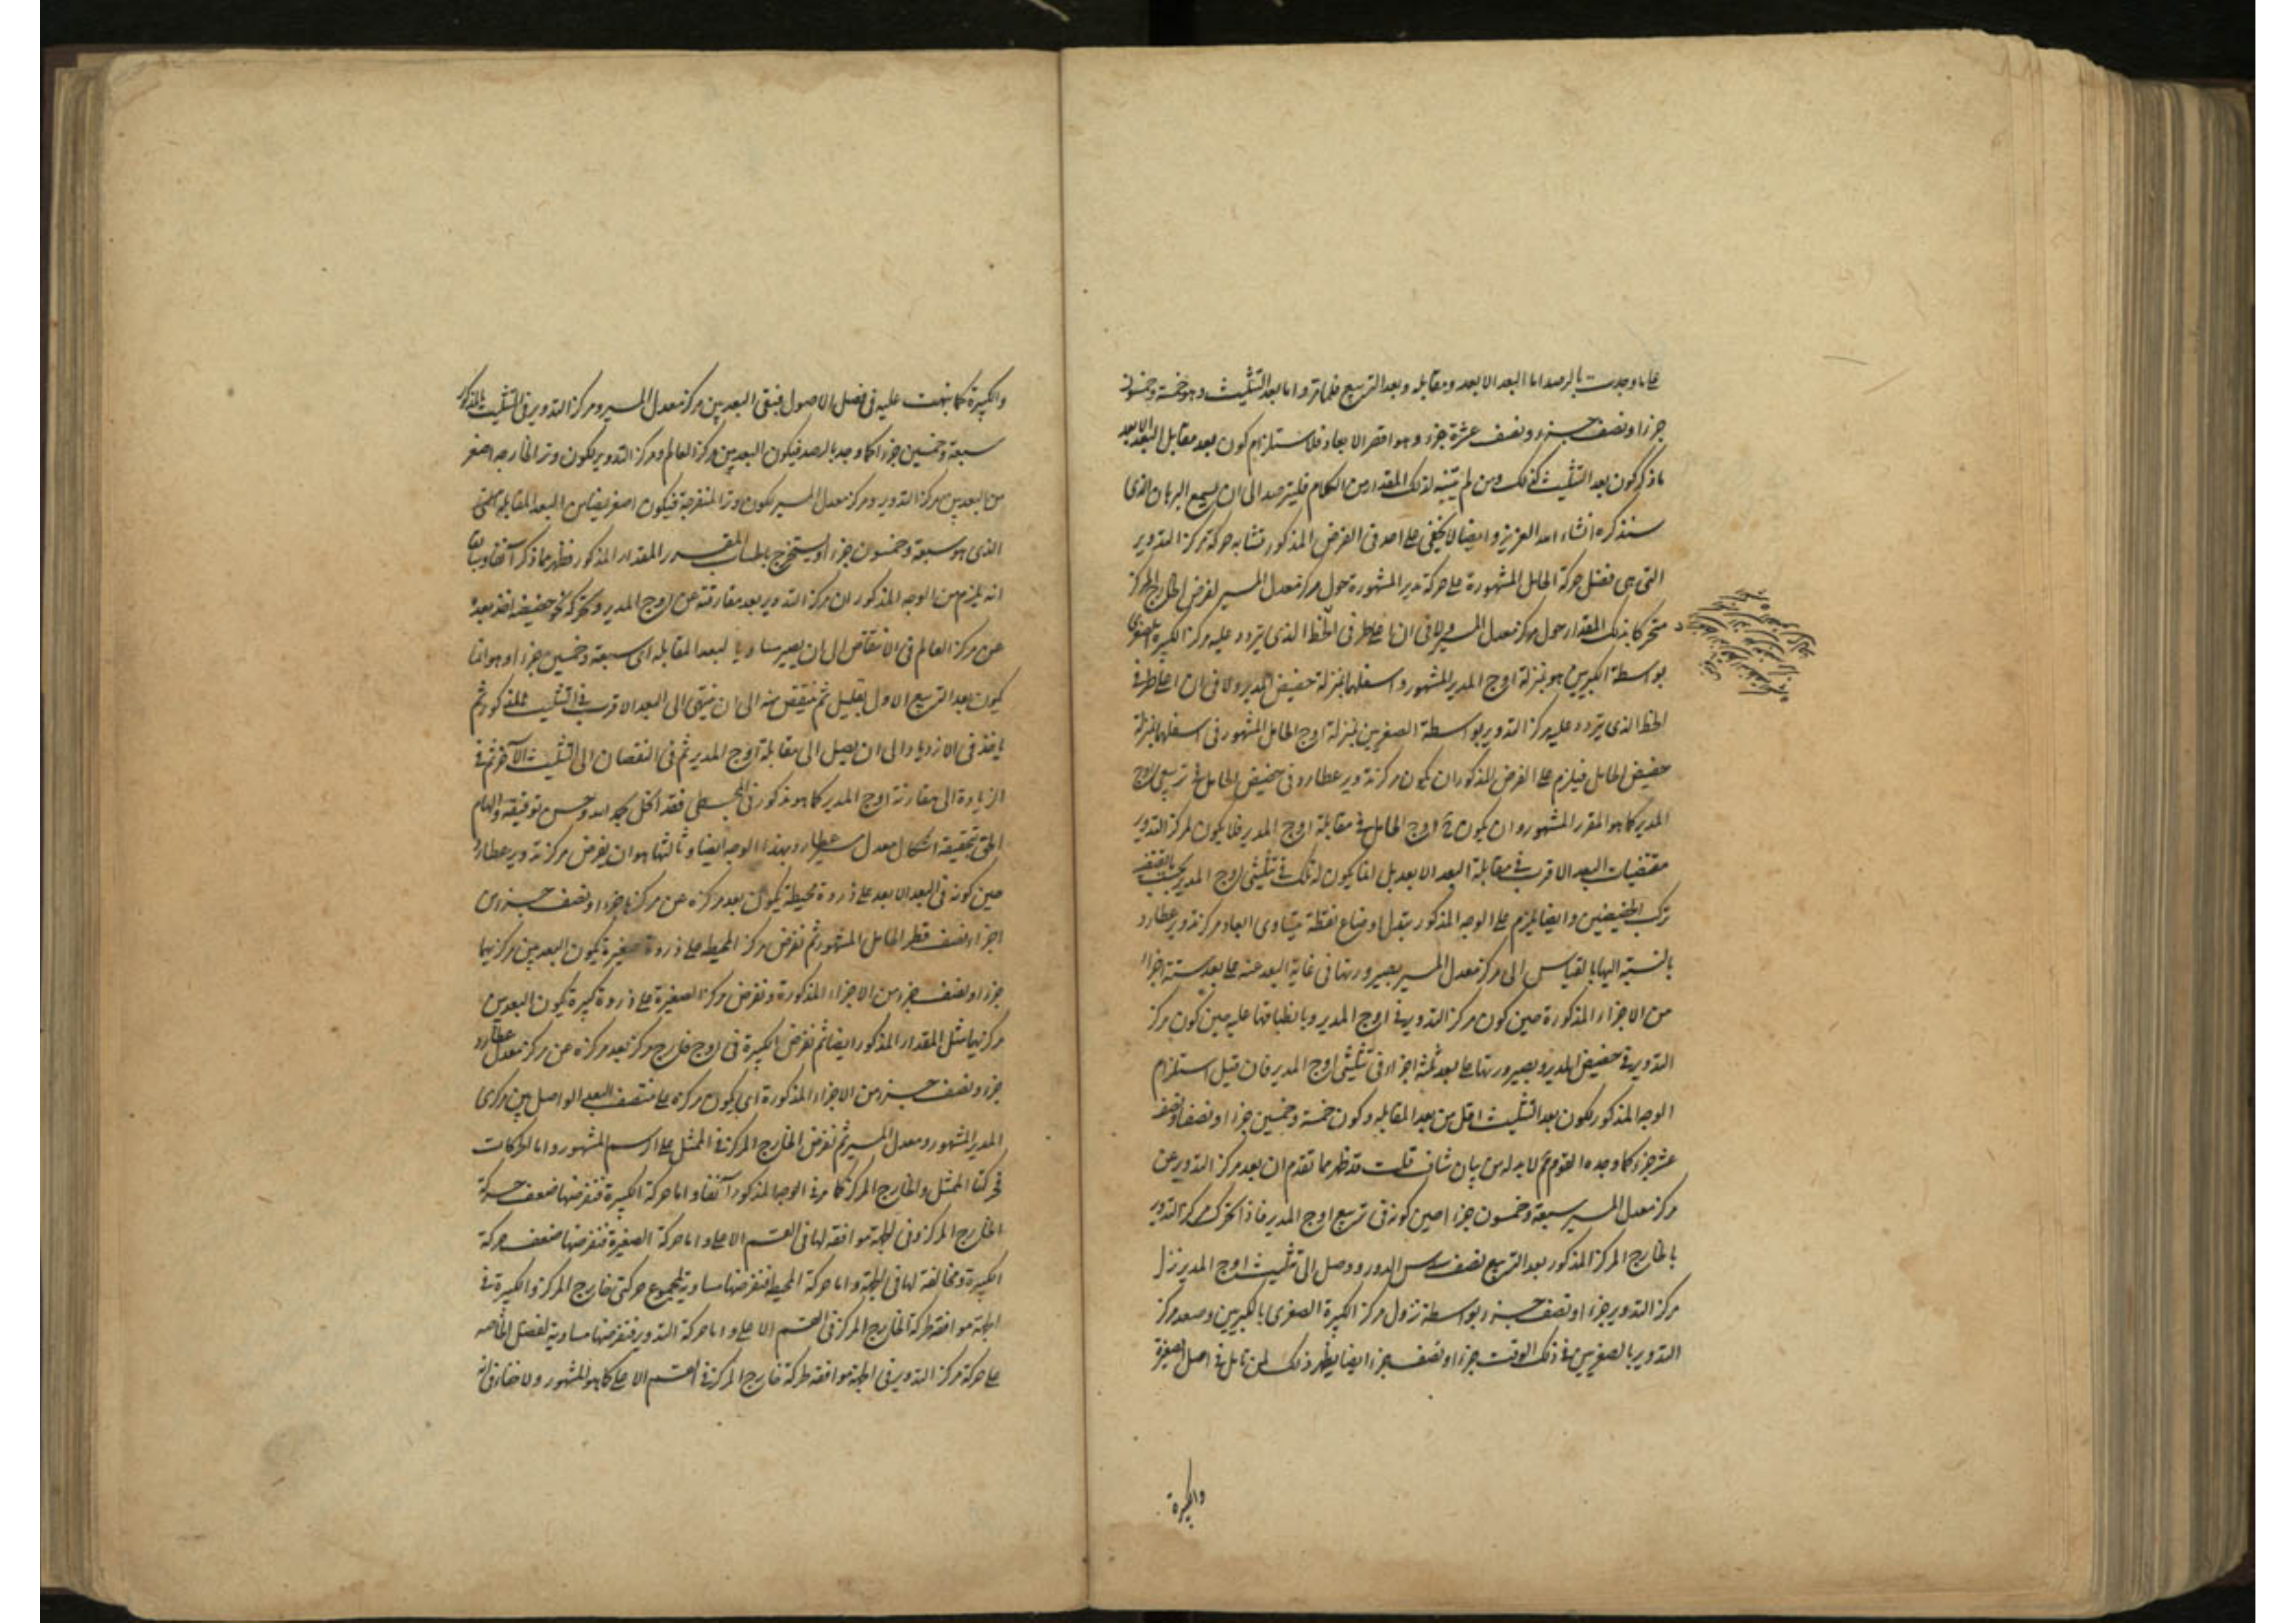 على ما وجدت بالرصد اما البعد الابعد ومقابله وبعد التربيع فلما مر واما بعد التثليث وهو خمسة وخمسون
جزءا ونصف جزء ونصف عشرة جزء وهو اقصر الابعاد فلاستلزام كون بعد مقابل البعد الابعد
ما ذكر كون بعد التثليث كذلك ومن لم يتنبه لذلك المقدار من الكلام فليترصد الى ان يسمع البرهان الذي
سنذكره انشاء الله العزيز وايضا لا يخفى على احد في الفرض المذكور تشابه حركة مركز التدوير
التي هي فضل حركة الحامل المشهورة على حركة مدير المشهورة حول مركز معدل المسير لفرض الخارج المركز
متحركا بذلك المقدار حول مركز معدل المسير ولا في ان اعلى طرفي الخط الذي يتردد عليه مركز الكبيرة الصغرى
بواسطة الكبريين هو بمنزلة اوج المدير المشهور واسفلهما بمنزلة حضيض المدير ولا في ان اعلى طرفي
الخط الذي يتردد عليه مركز التدوير بواسطة الصغريين بمنزلة اوج الحامل المشهور في اسفلهما بمنزلة
حضيض الحامل فيلزم على الفرض المذكور ان يكون مركز تدوير عطارد في حضيض الحامل في تربيعي اوج
المدير كما هو المقرر المشهور وان يكون في اوج الحامل في مقابلة اوج المدير فلا يكون لمركز التدوير
مقتضيات البعد الاقرب في مقابلة البعد الابعد بل انما يكون له ذلك في تثليثي اوج المدير بحسب ما يقتضيه
تركب الحضيضين وايضا يلزم على الوجه المذكور تبدل اوضاع نقطة يتساوى ابعاد مركز تدوير عطارد
بالنسبة اليها بالقياس الى مركز معدل المسير بصيرورتها في غاية البعد عنه على بعد ستة اجزاء
من الاجزاء المذكورة حين كون مركز التدوير في اوج المدير وبانطباقها عليه حين كون مركز
التدوير في حضيض المدير وبصيرورتها على بعد ثلثة اجزاء في تثليثي اوج المدير فان قيل استلزام
الوجه المذكور لكون بعد التثليث اقل من بعد المقابلة وكون خمسة وخمسين جزءا ونصفا ونصف
عشر جزء كما وجده القوم مما لا بد له من بيان شاف قلت قد ظهر مما تقدم ان بعد مركز التدوير عن
مركز معدل المسير سبعة وخمسون جزءا حين كونه في تربيع اوج المدير فاذا تحرك مركز التدوير
بالخارج المركز المذكور بعد التربيع نصف سدس الدور ووصل الى تثليث اوج المدير نزل
مركز التدوير جزءا ونصف جزء بواسطة نزول مركز الكبيرة الصغرى بالكبريين وصعد مركز
التدوير بالصغريين في ذلك الوقت جزءا ونصف جزء ايضا يظهر ذلك لمن تامل في اصل الصغيرة
والكبيرة
والكبيرة كما نبهت عليه في فصل الاصول فبقى البعد بين مركز معدل المسير ومركز التدوير في التثليث المذكور
سبعة وخمسين جزءا كما وجد بالرصد فيكون البعد بين مركز العالم ومركز التدوير لكون وتر الحادة اصغر
من البعد بين مركز التدوير ومركز معدل المسير لكون وتر المنفرجة فيكون اصغر ايضا من البعد المقابلة
الذي هو سبعة وخمسون جزءا ويستخرج بالحساب المقدار المذكور فظهر مما ذكر آنفا وسابقا
انه يلزم من الوجه المذكور ان مركز التدوير بعد مفارقته عن اوج المدير وتحركه نحو حضيضه اخذ بعده
عن مركز العالم في الانتقاص الى ان يصير مساويا لبعد المقابلة اي سبعة وخمسين جزءا وهو انما
يكون بعد التربيع الاول بقليل ثم ينتقص منه الى ان ينتهى الى البعد الاقرب في التثليث المذكور ثم
ياخذ في الازدياد الى ان يصل الى مقابلة اوج المدير ثم في النقصان الى التثليث الآخر ثم في
الزيادة الى مقارنة اوج المدير كما هو مذكور في المجسطي فقد انحل بحمد الله وحسن توفيقه والهام
الحق تحقيقه اشكال معدل مسير عطارد بهذا الوجه ايضا وثالثها هو ان يفرض مركز تدوير عطارد
حين كونه في البعد الابعد على ذروة محيطة يكون بعد مركزه عن مركزها جزءا ونصف جزء من
اجزاء نصف قطر الحامل المشهور ثم نفرض مركز المحيطة على ذروة صغيرة يكون البعد بين مركزيهما
جزءا ونصف جزء من الاجزاء المذكورة ونفرض مركز الصغيرة على ذروة كبيرة يكون البعد بين
مركزيهما مثل المقدار المذكور ايضا ثم نفرض الكبيرة في اوج خارج مركز بعد مركزه عن مركز معدل عطارد
جزء ونصف جزء من الاجزاء المذكورة اي يكون مركزه على منتصف البعد الواصل بين مركزي
المدير المشهور ومعدل المسير ثم نفرض الخارج المركز في الممثل على الرسم المشهور واما الحركات
فحركتا الممثل والخارج المركز كما مر في الوجه المذكور آنفا واما حركة الكبيرة فنفرضها ضعف حركة
الخارج المركز وفي الجهة موافقة لها في القسم الاعلى واما حركة الصغيرة فنفرضها ضعف حركة
الكبيرة ومخالفة لها في الجهة واما حركة المحيطة فنفرضها مساوية لمجموع حركتي خارج المركز والكبيرة في
الجهة موافقة لحركة الخارج المركز في القسم الاعلى واما حركة التدوير فنفرضها مساوية لفضل الخاصه
على حركة مركز التدوير في الجهة موافقة لحركة خارج المركز في القسم الاعلى كما هو المشهور ولا خفاء في ان